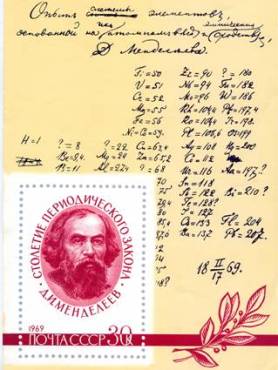 Опытъ системы элементовъ
основанной на ихъ атомномъ весе и химическомъ сходстве.
Д. Менделеевъ
Ti=50 Zr=90 ?=180
V=51 Nb=94 Ta=182
Cr=52 Mo=96 W=186
Mn=55 Rh=104,4 Pt=197,4
Fe=56 Ru=104,4 Ir=198
Ni=Co=59 Pl=106,6 Os=199
H=1 ?=8 ?=22 Cu=63,4 Ag=108 Hg=200
Be=9,4 Mg=24 Zn=65,2 Cd=112
B=11 Al=27,4 ?=68 Ur=116 Au=197?
?=70 Sn=118
As=75 Sb=122 Bi=210?
Te=128?
J=127
Cs=133 Tl=204
Ba=137 Pb=207
18 II/17 69.
СТОЛЕТИЕ ПЕРИОДИЧЕСКОГО ЗАКОНА
Д.И.МЕНДЕЛЕЕВ
1969
ПОЧТА СССР 30к